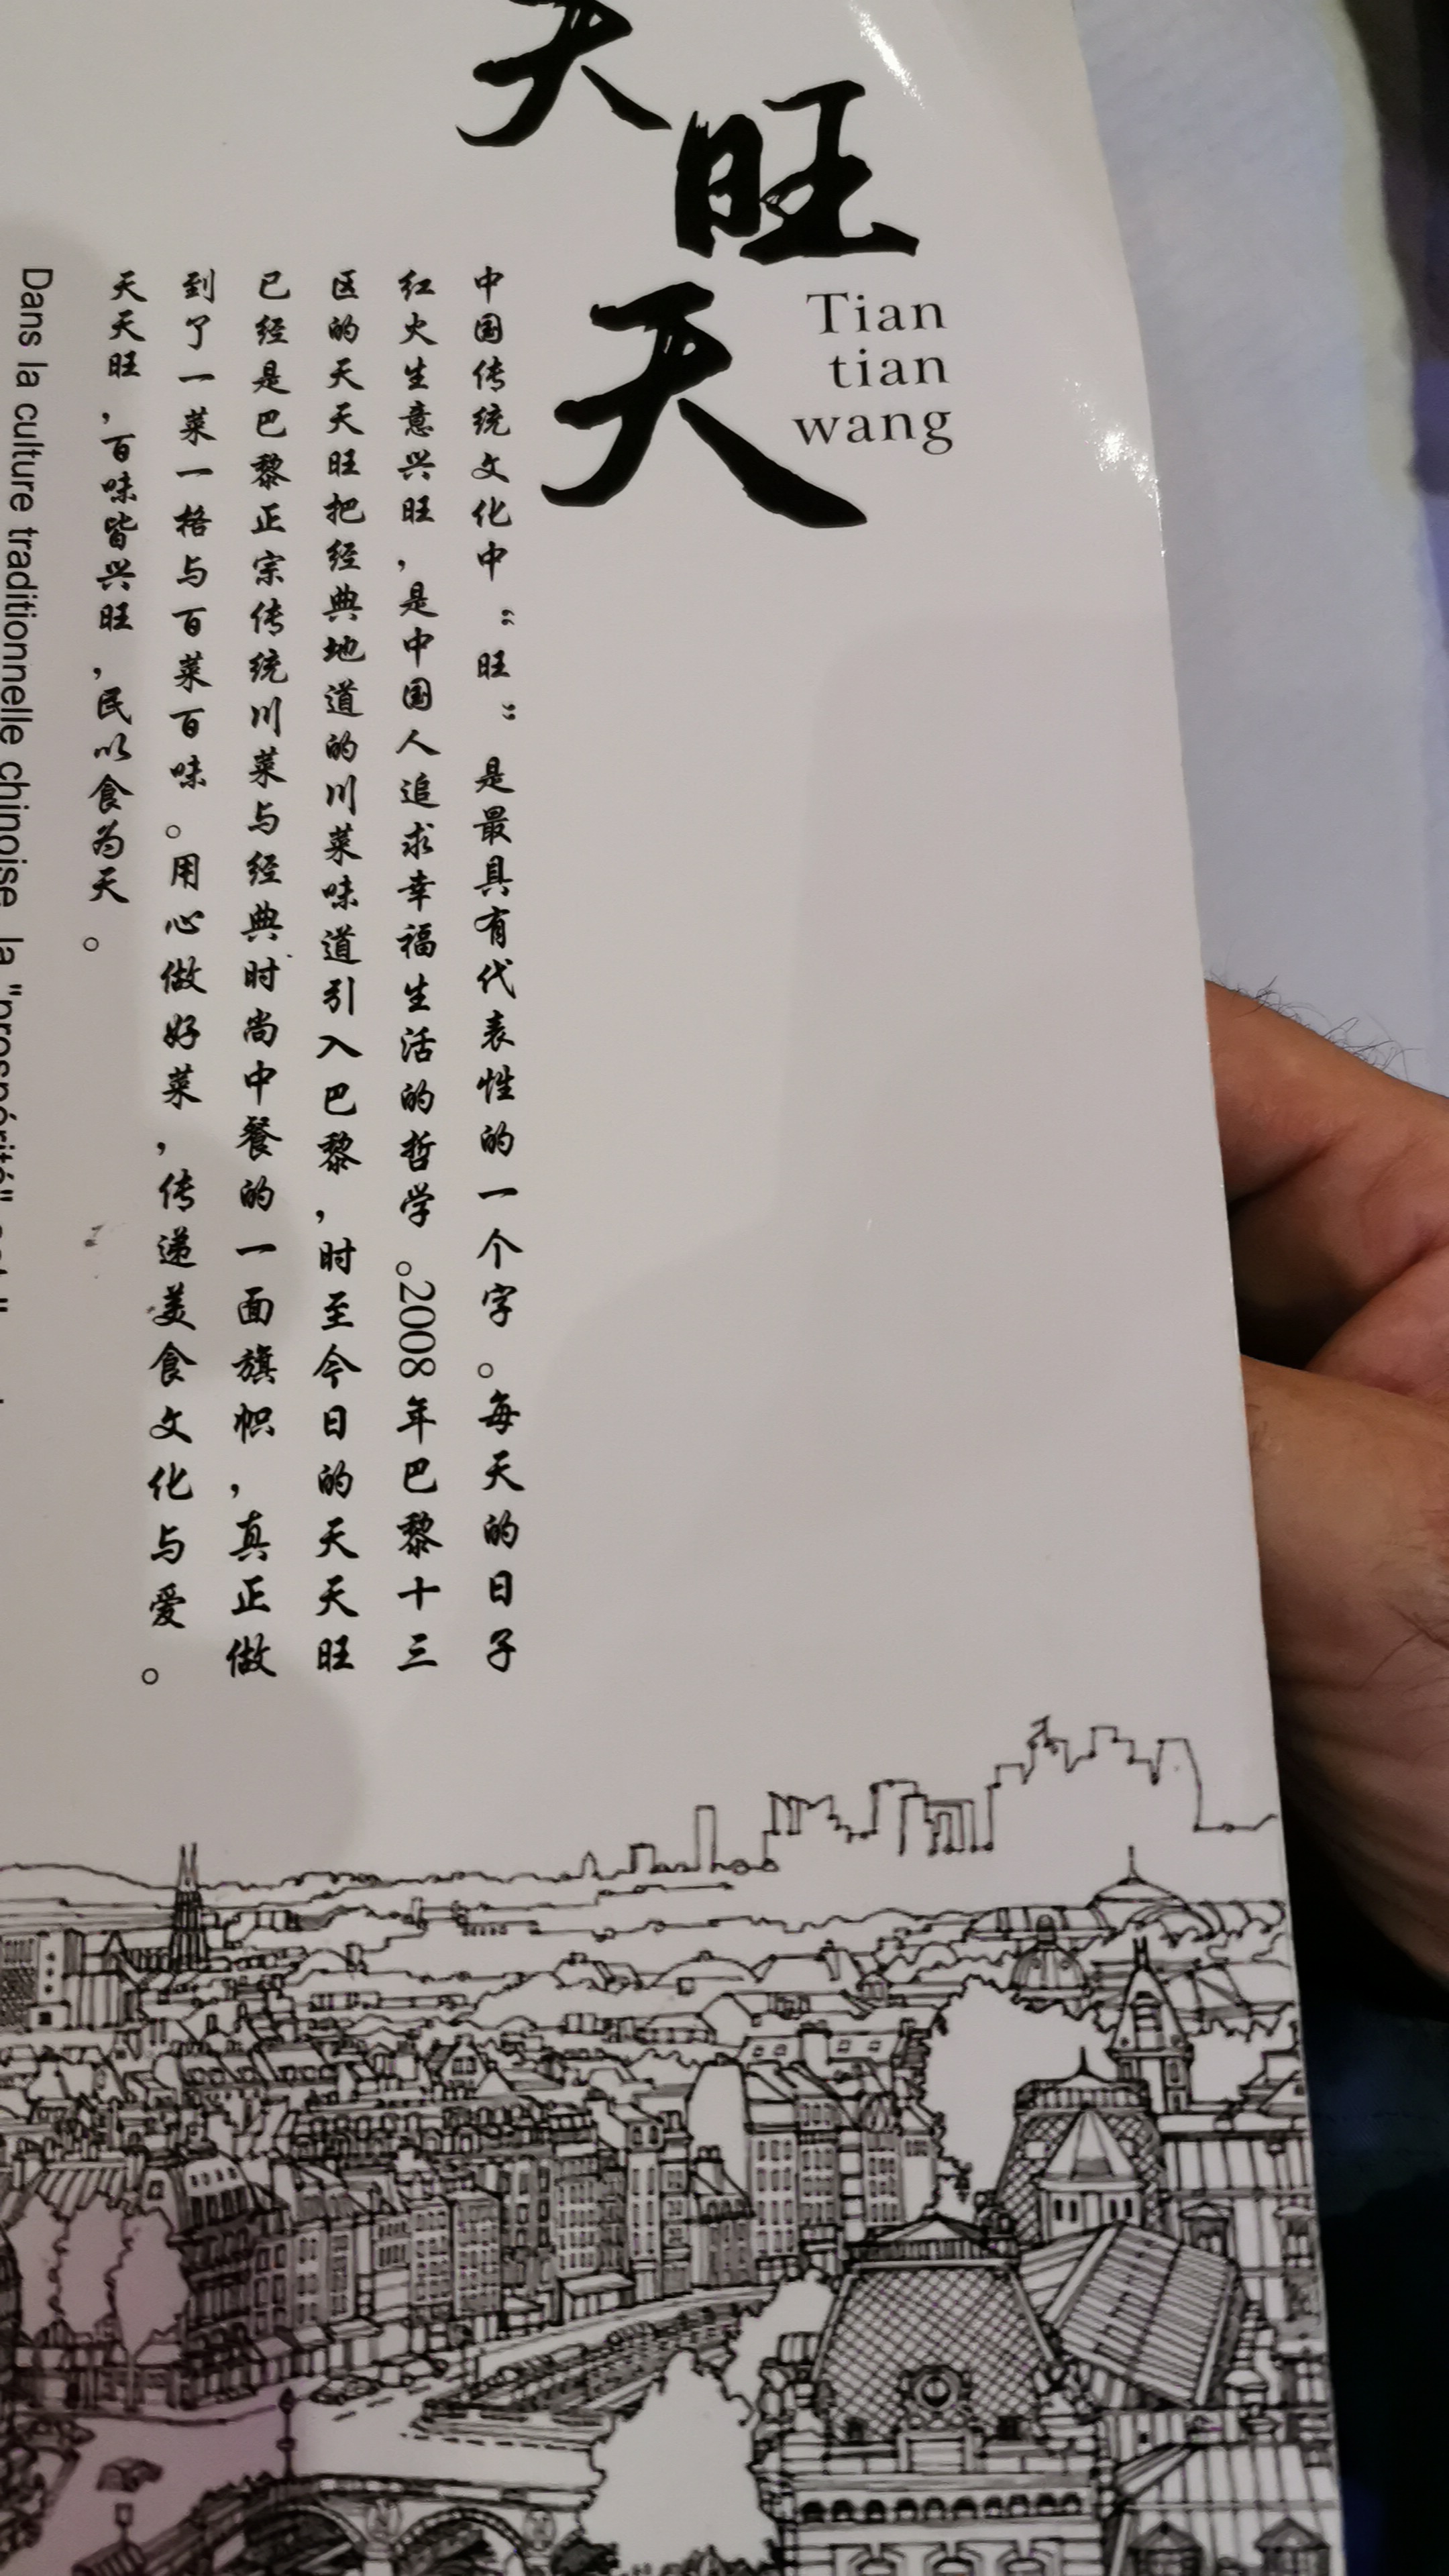 天
旺
天
Tian
tian
wang
中国传统文化中“旺”是最具有代表性的一个字。每天的日子
红火生意兴旺,是中国人追求幸福生活的哲学。2008年巴黎十三
区的天天旺把经典地道的川菜味道引入巴黎,时至今日的天天旺
已经是巴黎正宗传统川菜与经典时尚中餐的一面旗帜,真正做
到了一菜一格与百菜百味。用心做好菜,传递美食文化与爱。
天天旺,百味皆兴旺,民以食为天。
Dans la culture traditionnelle chinoise la "prospérité"